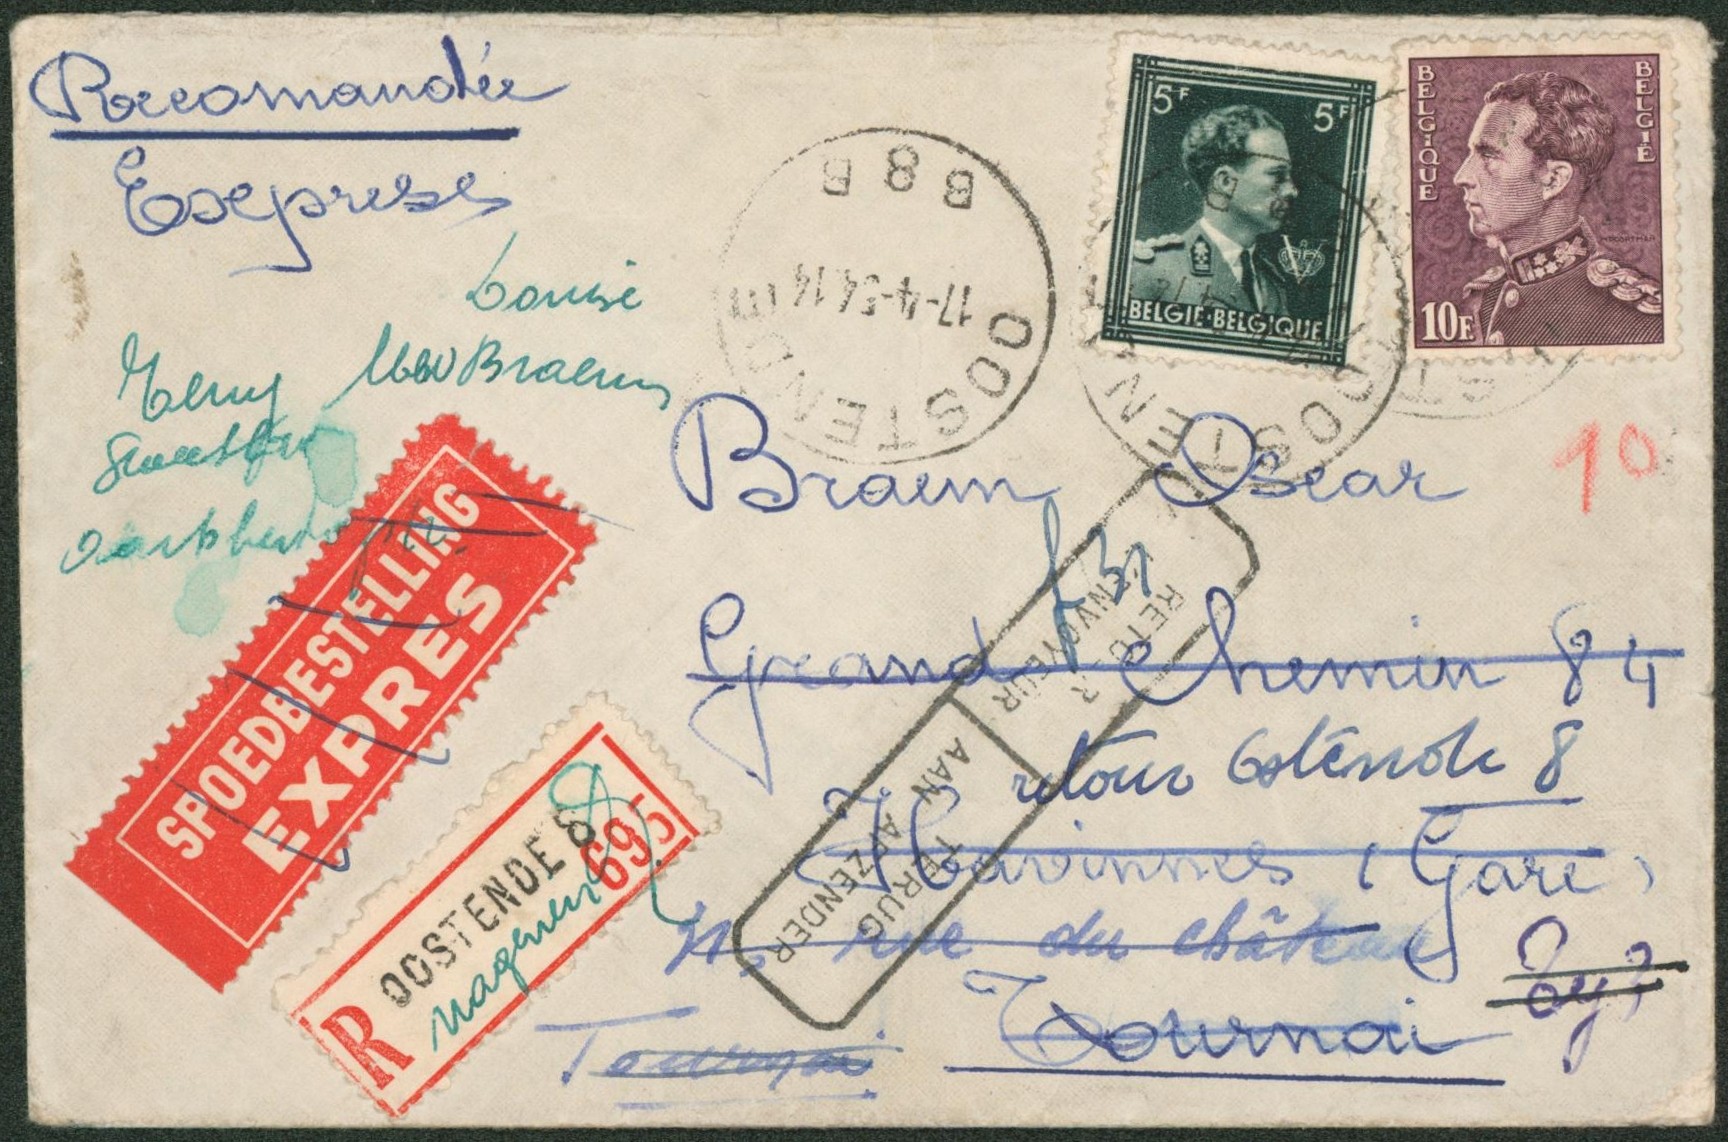 Recomandée
Express
B 8 B
17-4-54 14
OOSTENDE
5F 5F
BELGIE·BELGIQUE
BELGIQUE
BELGIË
10F
Louise
Braem
10
Braem Oscar
Grand Chemin 84
retour Ostende 8
Havinnes (Gare)
rue du château
Tournai
Tournai
RETOUR
A L'ENVOYEUR
TERUG
AAN AFZENDER
SPOEDBESTELLING
EXPRES
R
OOSTENDE 8
695